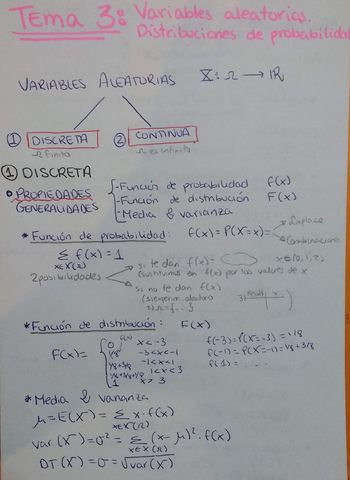 Tema 3: Variables aleatorias.
Distribuciones de probabilidad
VARIABLES ALEATORIAS X: Ω → ℝ
① DISCRETA
Ω finito
② CONTINUA
Ω es infinito
① DISCRETA
PROPIEDADES
GENERALIDADES
- Función de probabilidad f(x)
- Función de distribución F(x)
- Media & varianza
* Función de probabilidad: f(x) = P(X = x) =
Laplace
Combinaciones
Σ f(x) = 1
x∈X(Ω)
2 posibilidades
si te dan f(x) =
sustituimos en f(x) por los valores de x
x ∈ {0, 1, 2}
si no te dan f(x)
2) Ω = {...}
* Función de distribución: F(x)
F(x) =
0 x < -3
1/8 -3 < x < -1
1/8 + 3/8 -1 < x < 1
1 < x < 3
1 x > 3
f(-3) = P(X = -3) = 1/8
f(-1) = P(X = -1) = 1/8 + 3/8
f(1) = ....
* Media & Varianza
μ = E(X) = Σ x · f(x)
x∈X(Ω)
Var (X) = σ² = Σ (x - μ)² · f(x)
x∈X(Ω)
DT (X) = σ = √var(X)